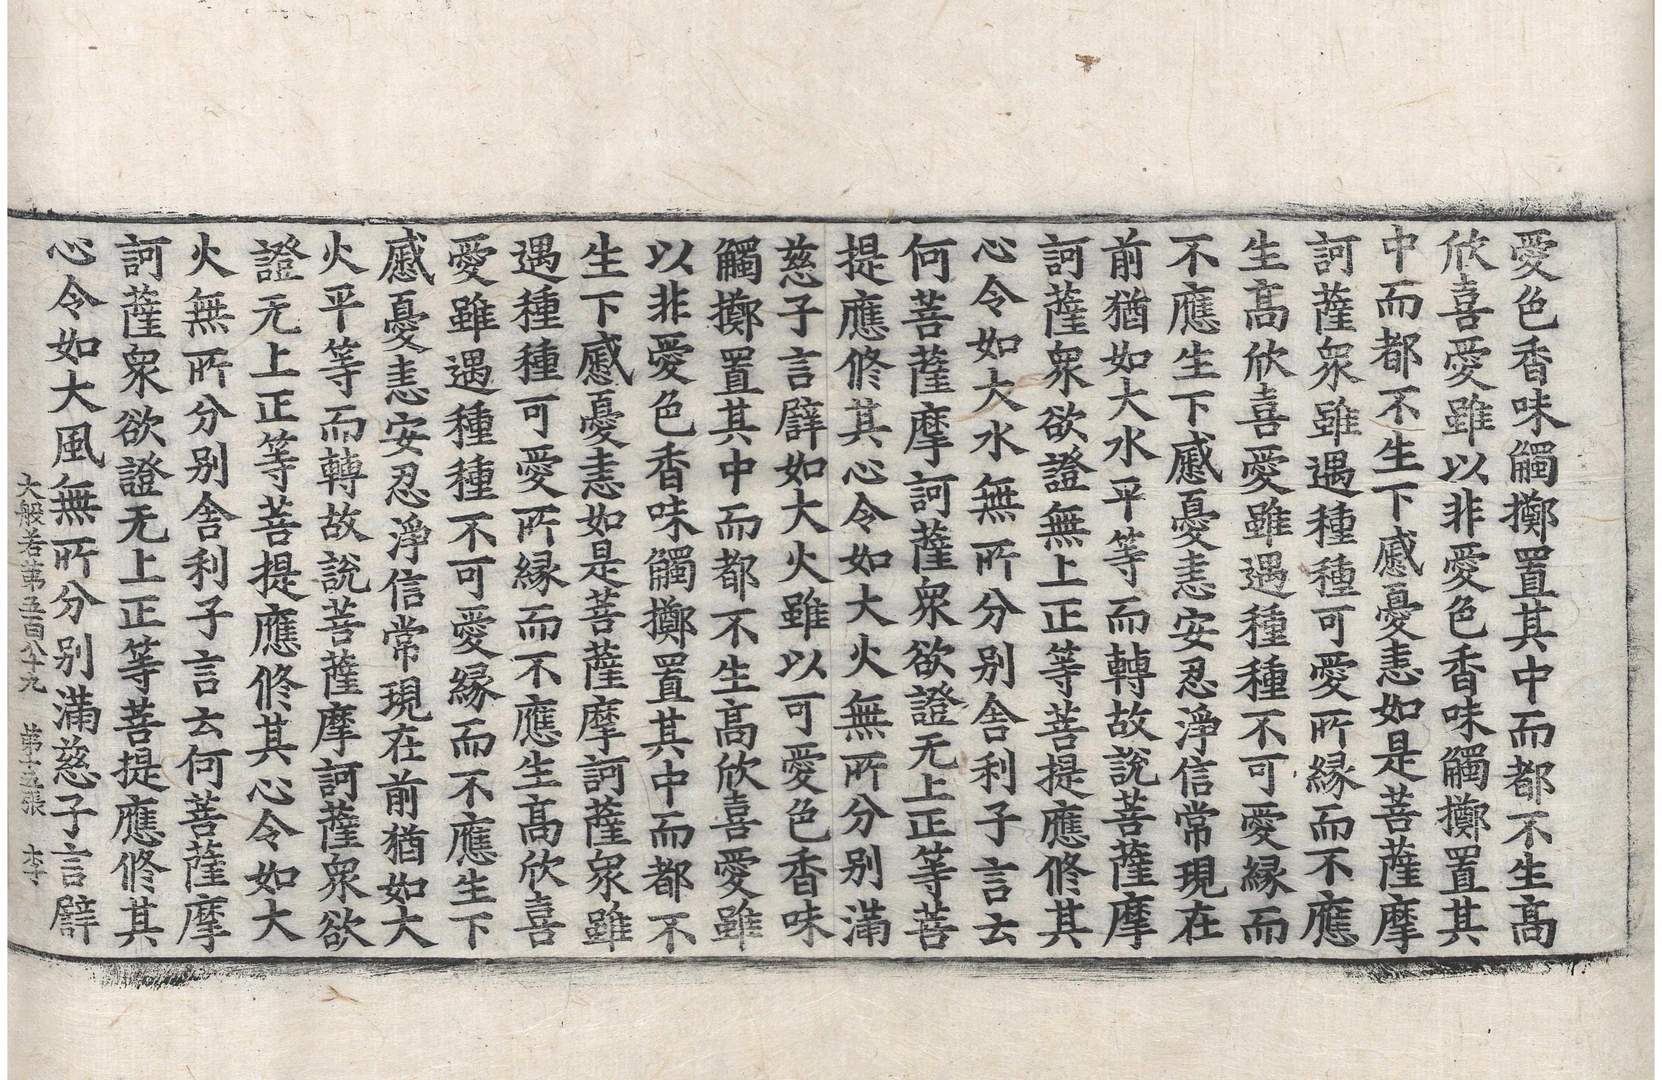 愛色香味觸擲置其中而都不生高
欣喜愛雖以非愛色香味觸擲置其
中而都不生下慼憂恚如是菩薩摩
訶薩衆雖遇種種可愛所縁而不應
生高欣喜愛雖遇種種不可愛縁而
不應生下慼憂恚安忍淨信常現在
前猶如大水平等而轉故說菩薩摩
訶薩衆欲證無上正等菩提應修其
心令如大水無所分别舍利子言云
何菩薩摩訶薩衆欲證无上正等菩
提應修其心令如大火無所分别滿
慈子言譬如大火雖以可愛色香味
觸擲置其中而都不生高欣喜愛雖
以非愛色香味觸擲置其中而都不
生下慼憂恚如是菩薩摩訶薩衆雖
遇種種可愛所縁而不應生高欣喜
愛雖遇種種不可愛縁而不應生下
慼憂恚安忍淨信常現在前猶如大
火平等而轉故說菩薩摩訶薩衆欲
證无上正等菩提應修其心令如大
火無所分别舍利子言云何菩薩摩
訶薩衆欲證无上正等菩提應修其
心令如大風無所分别滿慈子言譬
大般若第五百八十九　第十五張　李